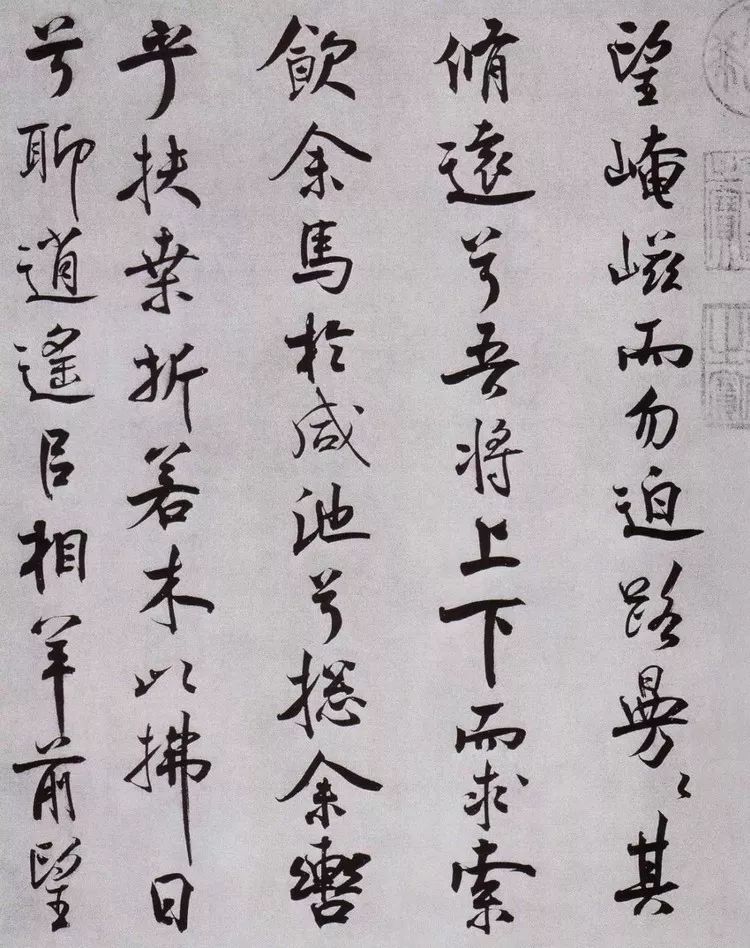 望崦嵫而勿迫路曼〻其
脩遠兮吾將上下而求索
飲余馬於咸池兮揔余轡
乎扶桒折若木以拂日
兮聊逍遙㠯相羊前望